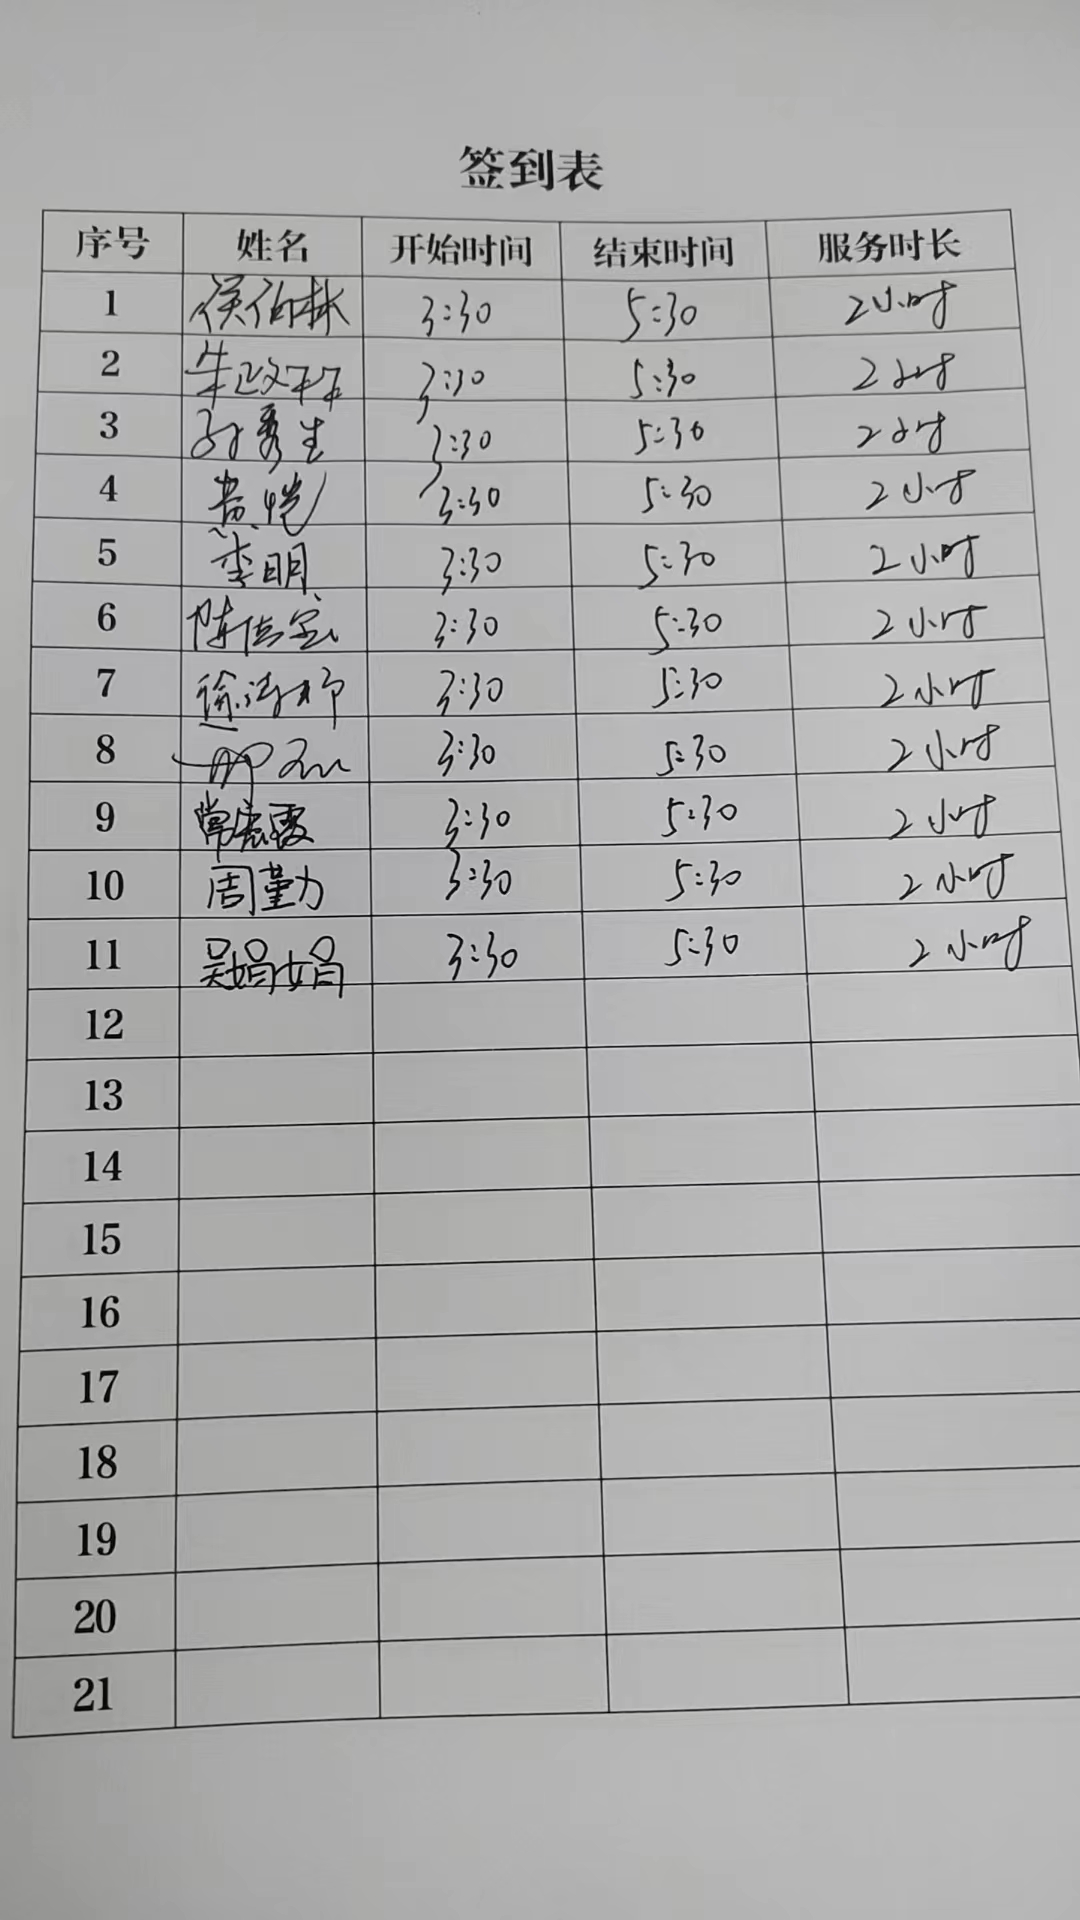 签到表
序号 姓名 开始时间 结束时间 服务时长
1 侯伯林 3:30 5:30 2小时
2 3:30 5:30 2小时
3 孙秀生 3:30 5:30 2小时
4 黄恺 3:30 5:30 2小时
5 李明 3:30 5:30 2小时
6 3:30 5:30 2小时
7 3:30 5:30 2小时
8 3:30 5:30 2小时
9 3:30 5:30 2小时
10 周勤力 3:30 5:30 2小时
11 吴娟娟 3:30 5:30 2小时
12
13
14
15
16
17
18
19
20
21